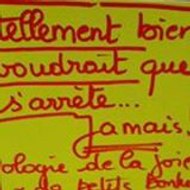 tellement bien
voudrait que
s'arrête...
Jamais
ologie de la joie
petits Bonhe